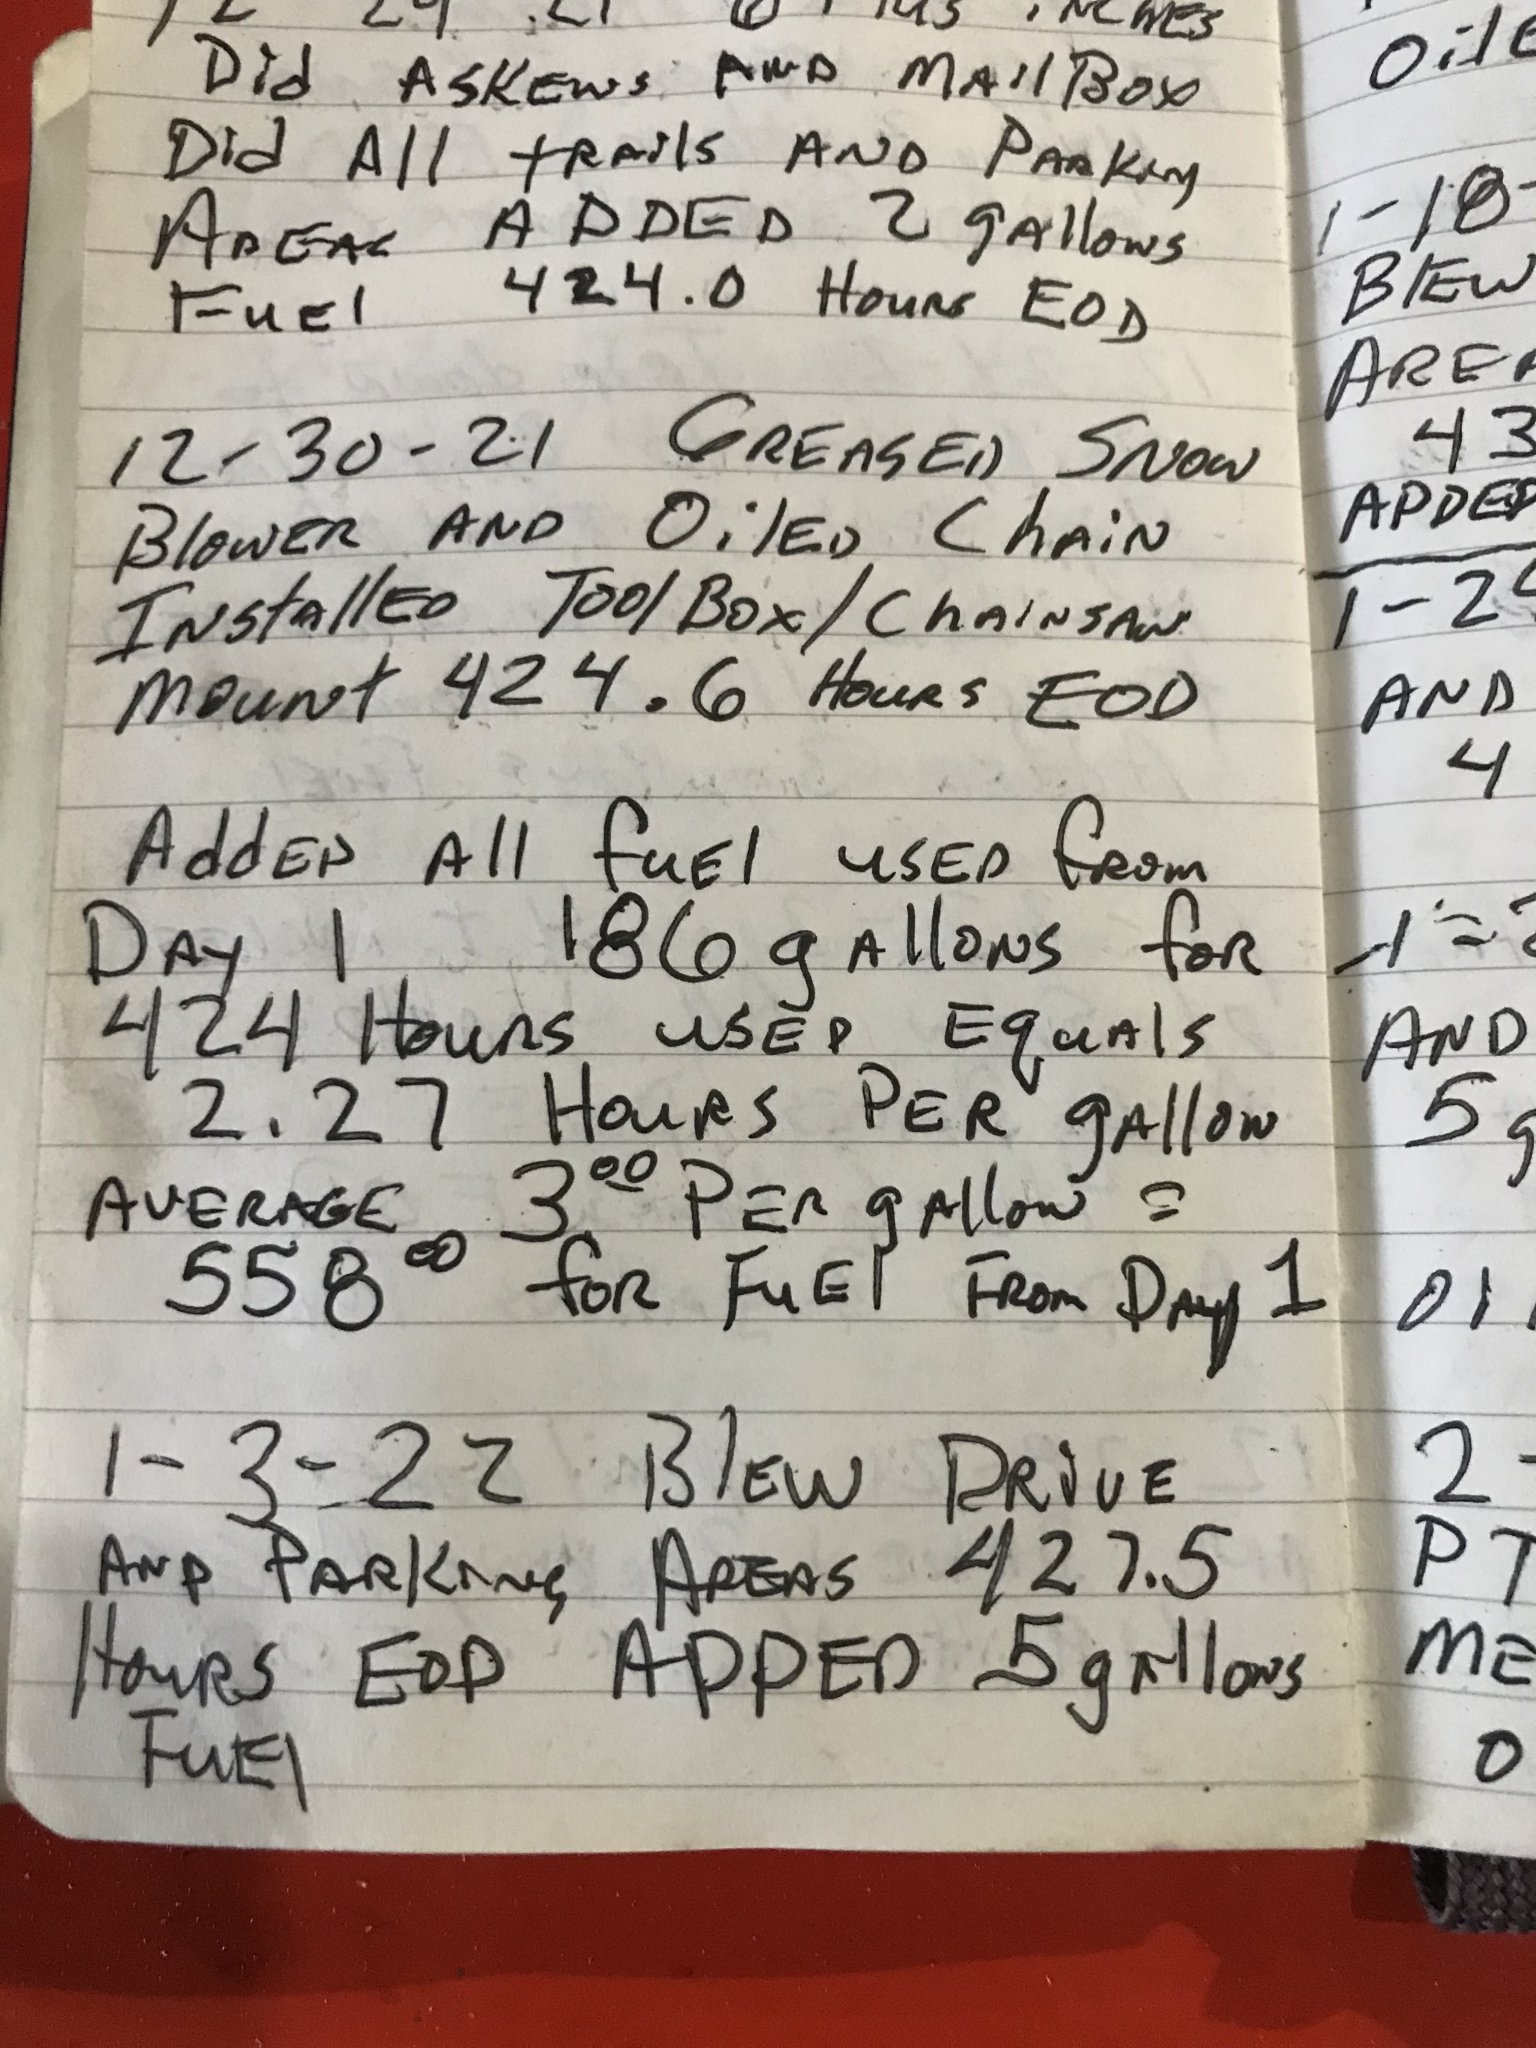 12-29-21 6 Plus INCHES
Did ASKEWS AND MAilBox
Did All tRAils AND PARKing
AREAS ADDED 2 gAllons
FuEl 424.0 HouRs EOD
12-30-21 GREASED SNOW
BlOWER AND OilED ChAiN
INStAllED ToolBox/ChAiNSAW
Mount 424.6 HouRS EOD
AddED All fuEl uSED fRom
DAy 1 186 gAllONS foR
424 HouRS uSED EquAlS
2.27 HouRS PER gAllON
AVERAGE 3.00 PER gAllON =
558 00 foR FuEl FRom DAy 1
1-3-22 BlEW DRiVE
AND PARKiNg AREAS 427.5
HouRS EOD ADDED 5 gAllONS
FuEl
1-18-
BlEW
43
ADDED
AND
4
AND
5 g
2 -
PT
ME